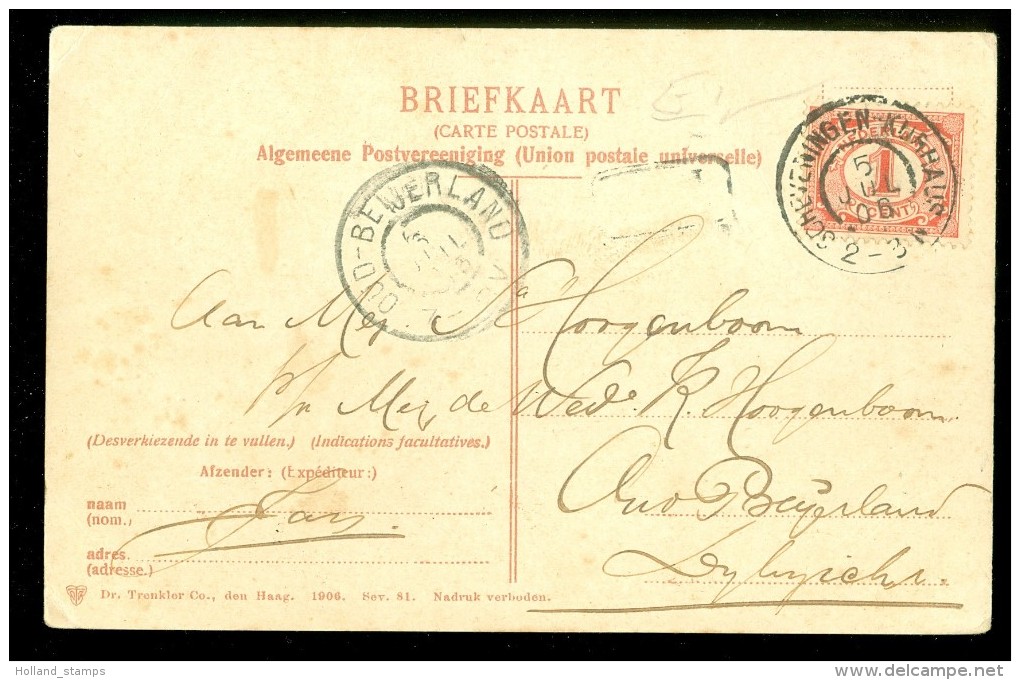 BRIEFKAART
(CARTE POSTALE)
Algemeene Postvereeniging (Union postale universelle)
SCHEVENINGEN-KURHAUS
5 JUL 06
2-3 N
NEDERLAND
1
CENT
OUD-BEIJERLAND
Aan Mej. Hoogenboom
p/a Mej de Wede K. Hoogenboom
Oud Beijerland
(Desverkiezende in te vullen.) (Indications facultatives.)
Afzender: (Expéditeur:)
naam
(nom.)
adres
(adresse.)
Dr. Trenkler Co., den Haag. 1906. Sev. 81. Nadruk verboden.
Holland_stamps
delcampe.net